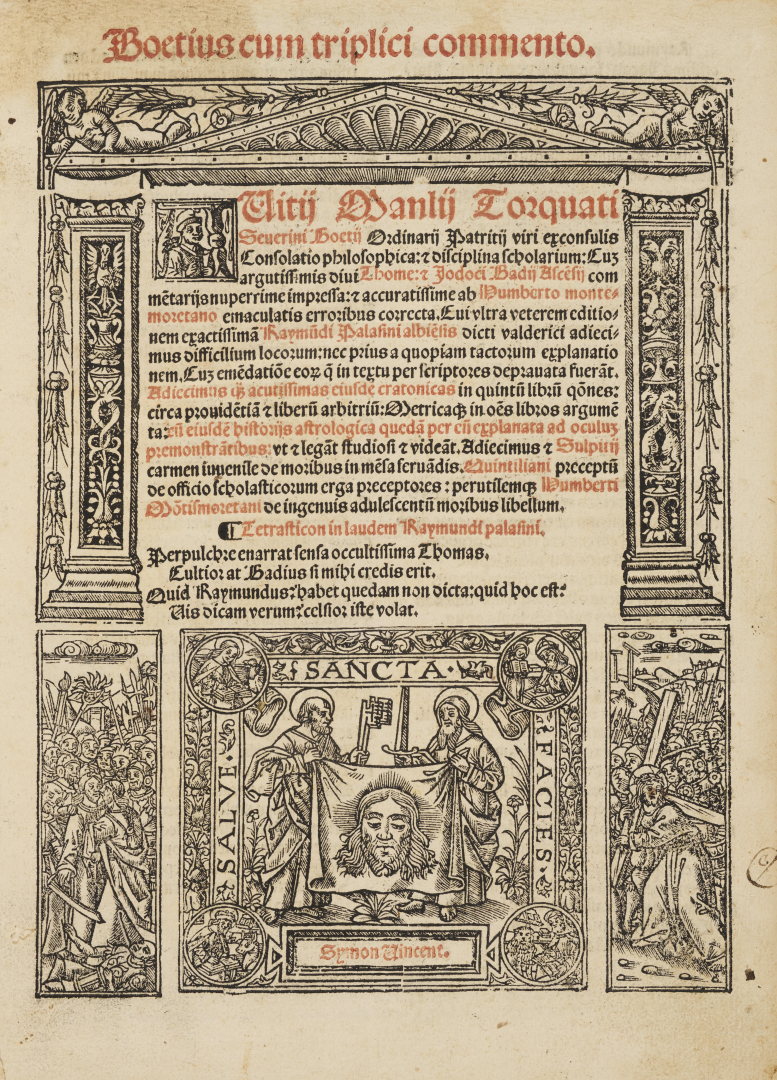 Boetius cum triplici commento.
Uitij Manlij Torquati
Seuerini Boetij Ordinarij Patritij viri exconsulis
Consolatio philosophica: ⁊ disciplina scholarium: Cuz
argutissimis diui Thome: ⁊ Jodoci Badij Ascẽsij com
mẽtarijs nuperrime impressa: ⁊ accuratissime ab Humberto monte-
moretano emaculatis erroribus correcta. Cui vltra veterem editio-
nem exactissimã Raymũdi Palasini albiẽsis dicti valderici adieci-
mus difficilium locorum: nec prius a quopiam tactorum explanatio
nem. Cuz emẽdatiõe eoꝝ q̃ in textu per scriptores deprauata fuerãt.
Adiecimus qꝫ acutissimas eiusdẽ cratonicas in quintũ librũ q̃ones:
circa prouidẽtiã ⁊ liberũ arbitriũ: Metricaqꝫ in oẽs libros argumẽ
ta: cũ eiusdẽ historijs astrologica quedã per eũ explanata ad oculuz
premonstrãtibus: vt ⁊ legãt studiosi ⁊ videãt. Adiecimus ⁊ Sulpitij
carmen iuuenile de moribus in mẽsa seruãdis. Quintiliani preceptũ
de officio scholasticorum erga preceptores: perutilemqꝫ Humberti
Mõtismoretani de ingenuis adulescentũ moribus libellum.
¶ Tetrasticon in laudem Raymundi palasini.
Perpulchre enarrat sensa occultissima Thomas.
Cultior at Badius si mihi credis erit.
Quid Raymundus? habet quedam non dicta: quid hoc est?
Uis dicam verum? celsior iste volat.
SANCTA
SALVE
FACIES
Symon Uincent.